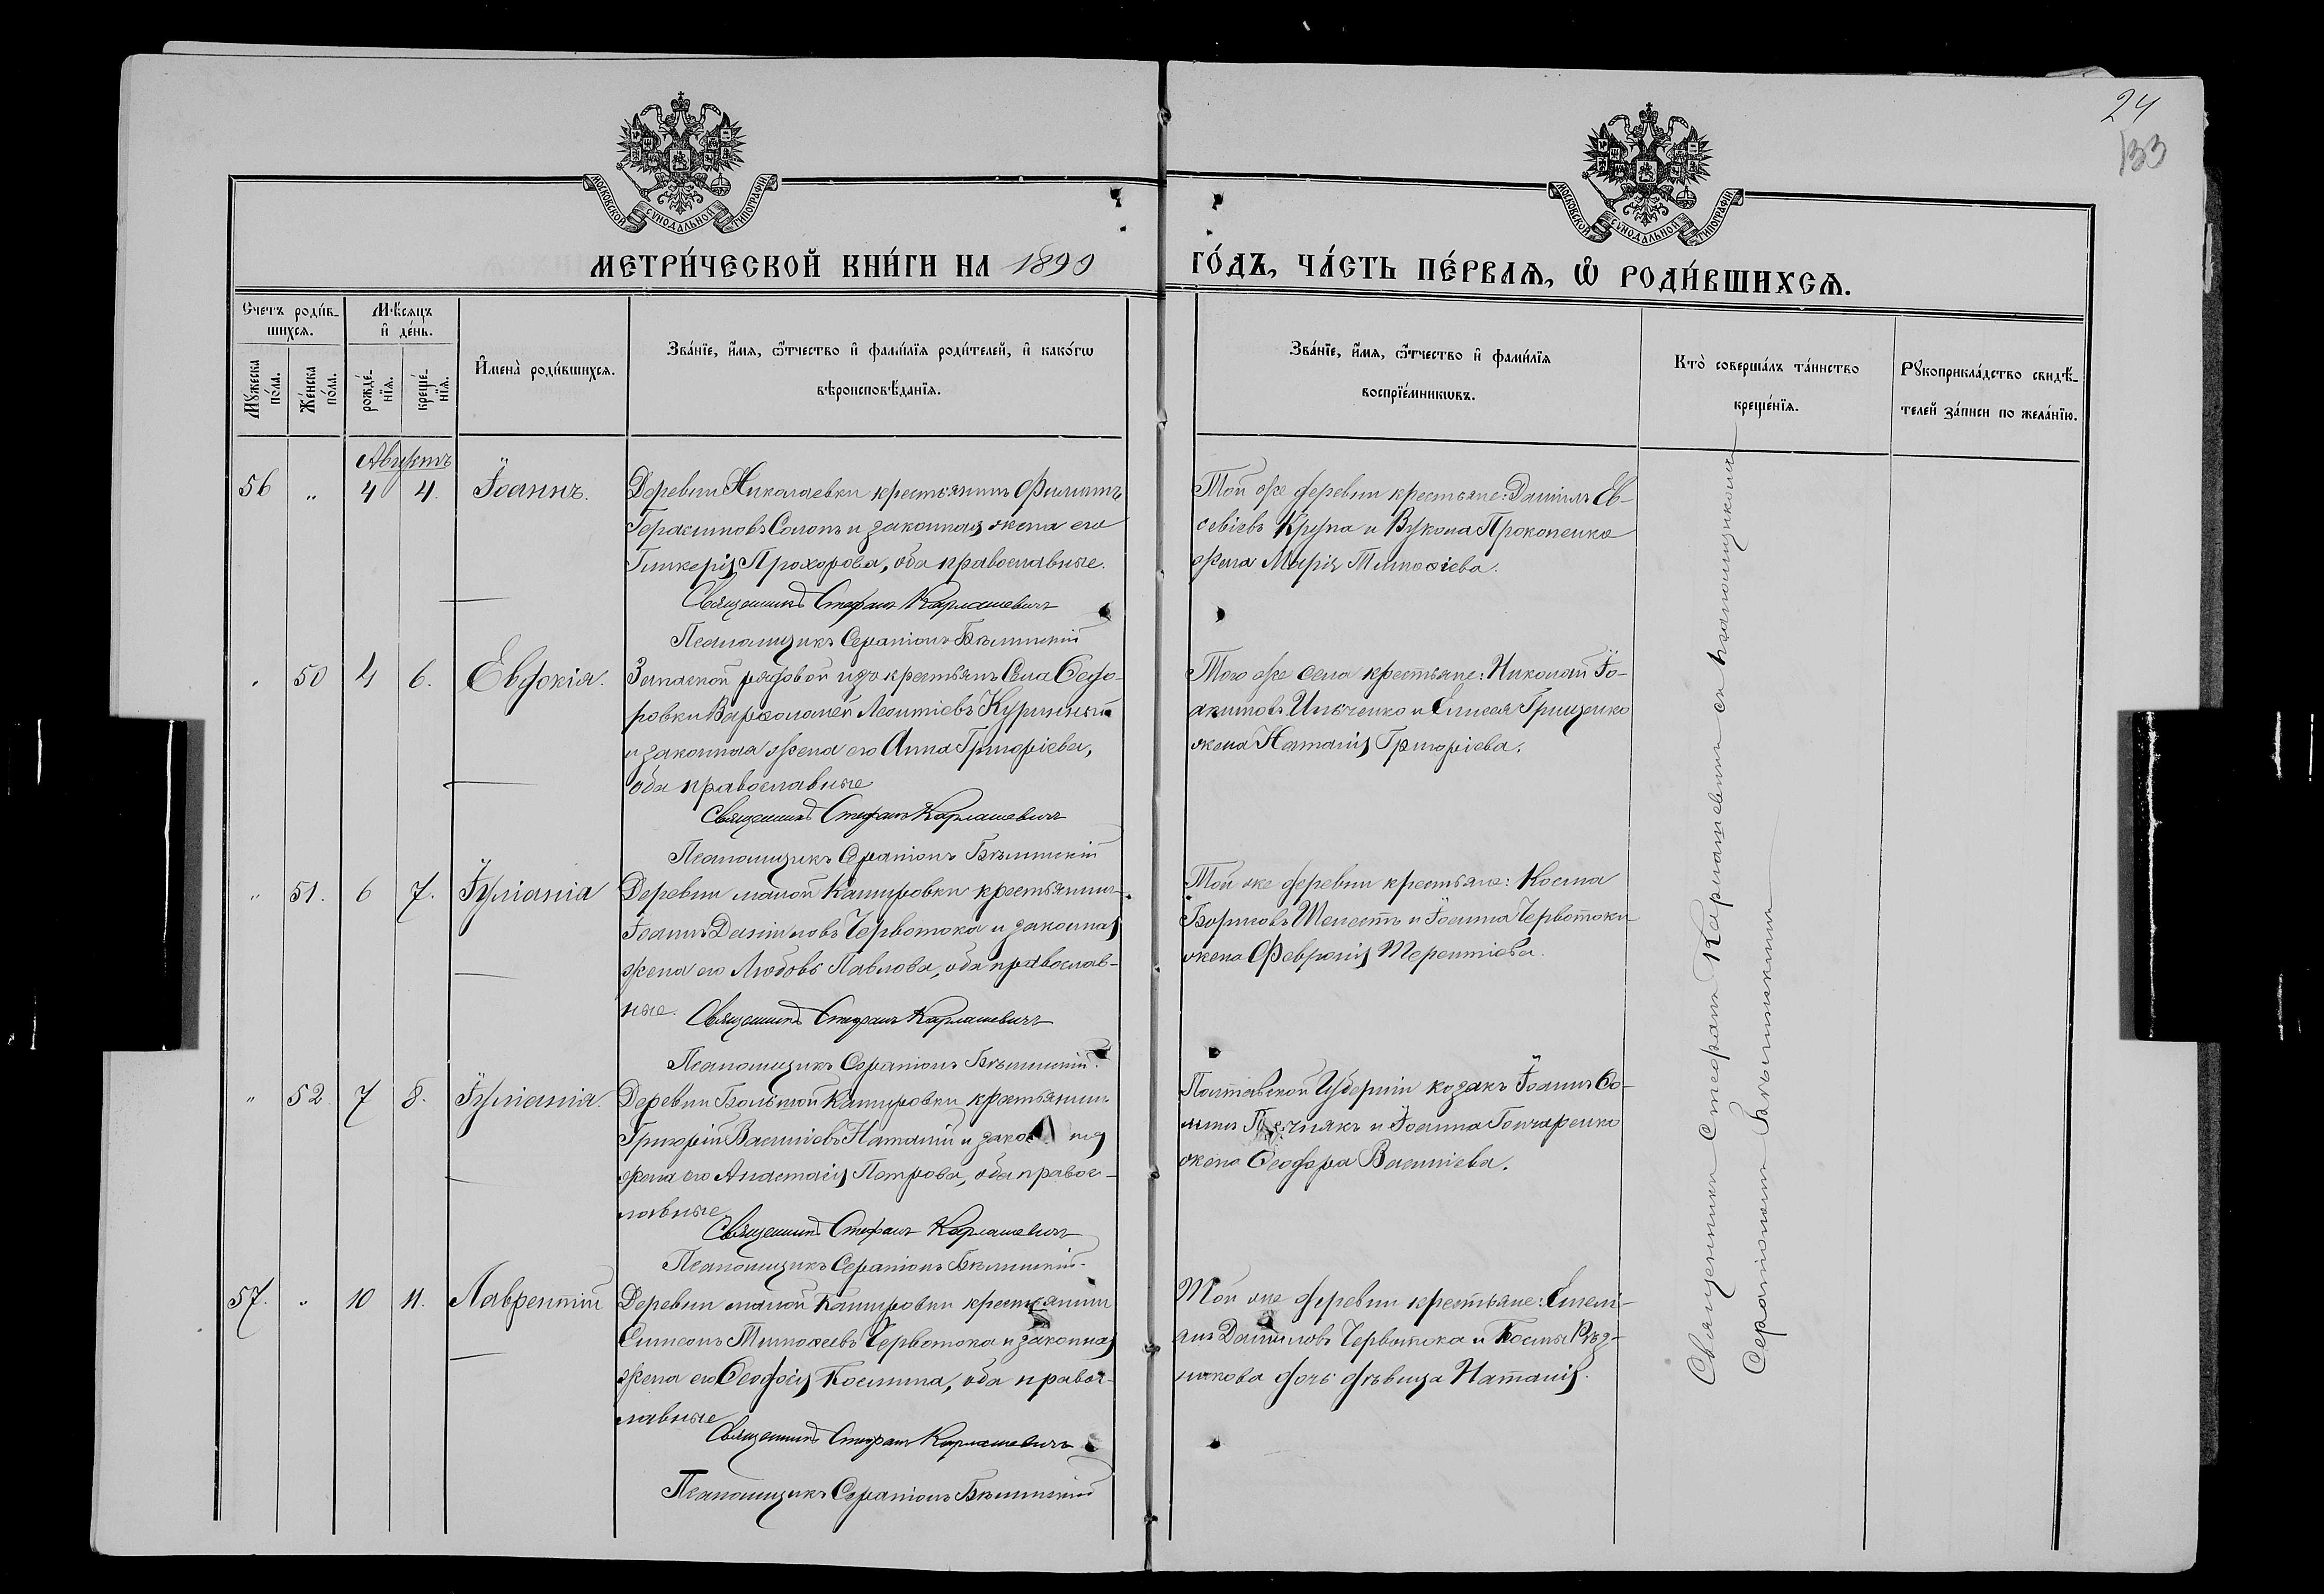 24
133
МОСКОВСКОЙ СѴНОДАЛЬНОЙ ТИПОГРАФІИ
МОСКОВСКОЙ СѴНОДАЛЬНОЙ ТИПОГРАФІИ
МЕТРИ́ЧЕСКОЙ КНИ́ГИ НА 1890
ГО́ДЪ, ЧА́СТЬ ПЕ́РВАѦ, Ѽ РОДИ́ВШИХСѦ.
Счетъ роди́в-
шихсѧ.
Мѣсѧцъ
и҆ де́нь.
Мꙋжеска по́ла.
Же́нска по́ла.
рожде́-нїѧ.
креще́-нїѧ.
И҆мена̀ роди́вшихсѧ.
Зва́нїе, и҆́мѧ, ѻ҆́тчество и҆ фами́лїѧ роди́телей, и҆ како́гѡ
вѣроисповѣ́данїѧ.
Зва́нїе, и҆́мѧ, ѻ҆́тчество и҆ фами́лїѧ
воспрїе́мникѡвъ.
Кто̀ соверша́лъ та́инство
креще́нїѧ.
Рꙋкоприкла́дство свидѣ́-
телей за́писи по жела́нїю.
Августъ
56 " 4 4. Іоаннъ.
Деревни Николаевки крестьянинъ Филиппъ
Герасимовъ Солопъ и законная жена его
Гликерія Прохорова, оба православные.
Священникъ Стефанъ Карпашевичъ
Псаломщикъ Серапіонъ Бѣлинскій
Той же деревни крестьяне: Даніилъ Ев-
севіевъ Крупа и Вукола Прокопенка
жена Марія Тимофіева.
" 50 4 6. Евдокія.
Запасной рядовой изъ крестьянъ Села Федо-
ровки Варфоломей Леонтіевъ Куринный
и законная жена его Анна Григоріева,
оба православные
Священникъ Стефанъ Карпашевичъ
Псаломщикъ Серапіонъ Бѣлинскій
Того же села крестьяне: Николай Іо-
акимовъ Ильченко и Елисея Грищенко
жена Наталія Григоріева.
" 51. 6 7. Іуліанія
Деревни малой Кашировки крестьянинъ
Іоаннъ Даніиловъ Червотока и законная
жена его Любовь Павлова, оба православ-
ные.
Священникъ Стефанъ Карпашевичъ
Псаломщикъ Серапіонъ Бѣлинскій
Той же деревни крестьяне: Косма
Борисовъ Шелестъ и Іоанна Червотоки
жена Февронія Терентіева.
" 52 7 8. Іуліанія.
Деревни Большой Кашировки крестьянинъ
Григорій Василіевъ Наталій и зако ная
жена его Анастасія Петрова, оба правос-
лавные
Священникъ Стефанъ Карпашевичъ
Псаломщикъ Серапіонъ Бѣлинскій
Полтавской Губерніи козакъ Іоаннъ
и Іоанна Гончаренко
жена Феодора Василіева.
57. " 10 11. Лаврентій
Деревни малой Кашировки крестьянинъ
Симеонъ Тимофеевъ Червотока и законная
жена его Феодосія Космина, оба правос-
лавные
Священникъ Стефанъ Карпашевичъ
Псаломщикъ Серапіонъ Бѣлинскій
Той же деревни крестьяне: Емелі-
анъ Даниловъ Червотока и Космы Рѣз-
никова дочь дѣвица Наталія.
Священникъ Стефанъ Карпашевичъ съ псаломщикомъ
Серапіономъ Бѣлинскимъ